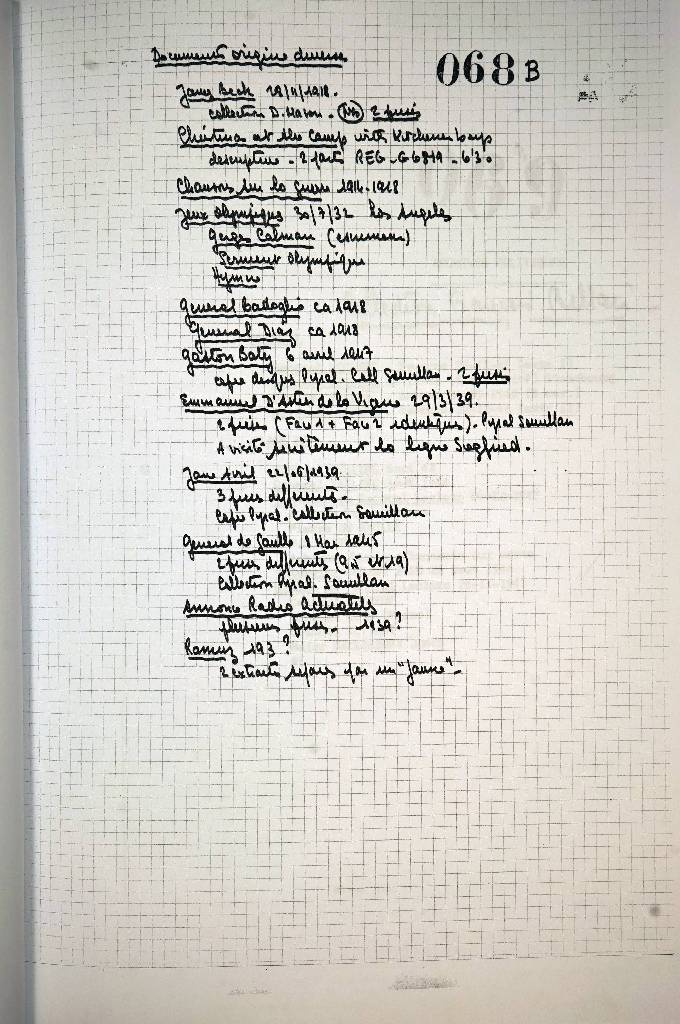 Documents origine diverse
068 B
James Beck 29/11/1918.
collection D. Mason. 2 prises
Christmas at the Camp with Kitcheners boys
descriptive. 2 parts REG. G6819. 6'30
Chansons sur la guerre 1914.1918
Jeux Olympiques 30/7/32 Los Angeles
Georges Calman (escrimeur)
Serment Olympique
Hymne
General Badoglio ca 1918
General Diaz ca 1918
Gaston Baty 6 avril 1947
copie disques Pyral. Coll Semillan. 2 prises
Emmanuel D'Astier de la Vigerie 29/3/39.
2 prises (Face 1 + Face 2 identiques). Pyral Semillan
A visité secrètement la ligne Siegfried.
Jane Avril 22/05/1939
3 prises differents.
Copie Pyral. Collection Semillan
General de Gaulle 8 Mai 1945
2 prises differents
Collection Pyral. Semillan
Annonce Radio Actualités
plusieurs prises. 1939?
Ramuz 193?
2 extraits separes par un "Jaune".